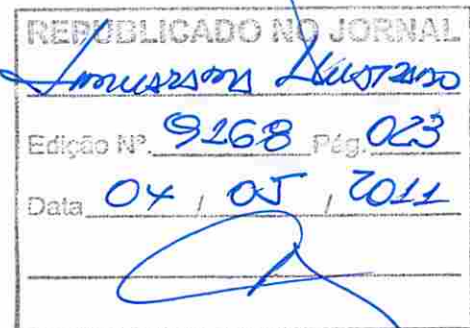 REPUBLICADO NO JORNAL
Umuarama Ilustrado
Edição Nº 9268 Pág. 023
Data 04 / 05 / 2011